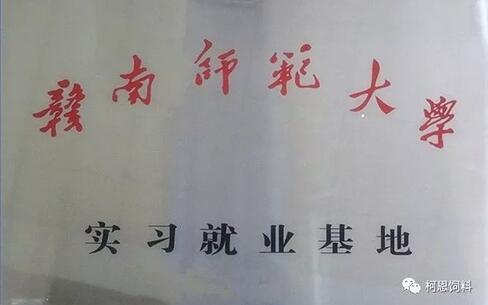 赣南師範大學
实习就业基地
柯恩饲料